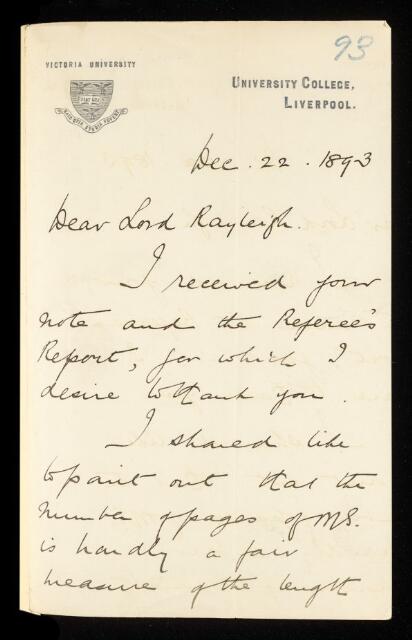 93
VICTORIA UNIVERSITY
UNIVERSITY COLLEGE,
LIVERPOOL.
Dec. 22. 1893
Dear Lord Rayleigh.
I received your
note and the Referee's
Report, for which I
desire to thank you.
I should like
to point out that the
number of pages of MS.
is hardly a fair
measure of the length